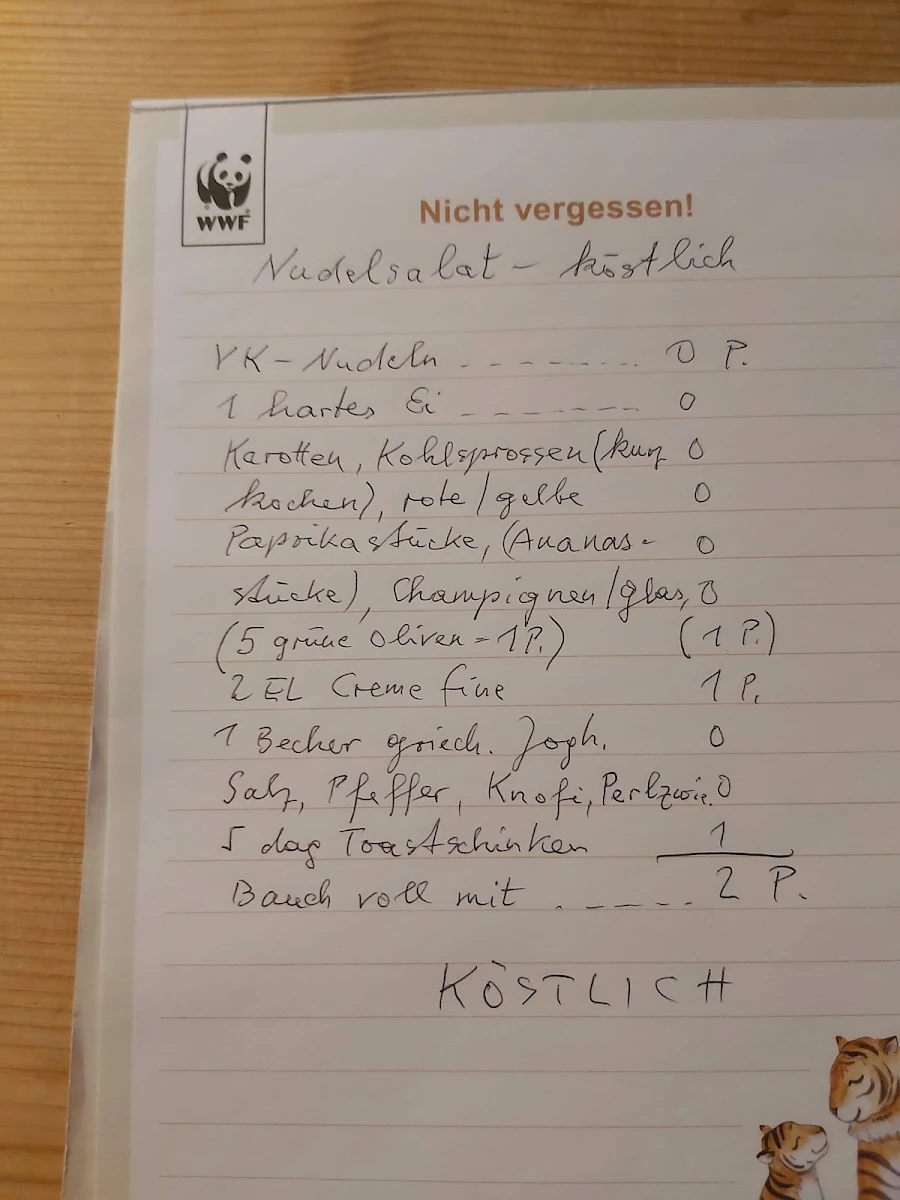 WWF
Nicht vergessen!
Nudelsalat – köstlich
VK-Nudeln ........ 0 P.
1 hartes Ei ........ 0
Karotten, Kohlsprossen (kurz 0
kochen), rote/gelbe 0
Paprikastücke, (Ananas- 0
stücke), Champignen/glas, 0
(5 grüne Oliven = 1 P.) (1 P.)
2 EL Creme fine 1 P.
1 Becher griech. Jogh. 0
Salz, Pfeffer, Knofi, Perlzwie. 0
5 dag Toastschinken 1
Bauch voll mit ...... 2 P.
KÖSTLICH